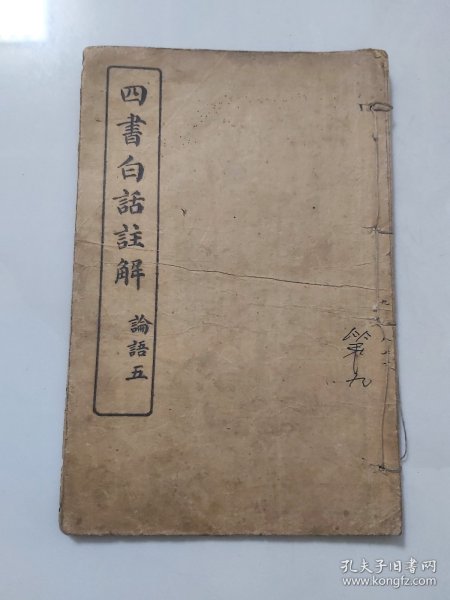 四書白話註解
論語五
第九
孔夫子旧书网
www.kongfz.com